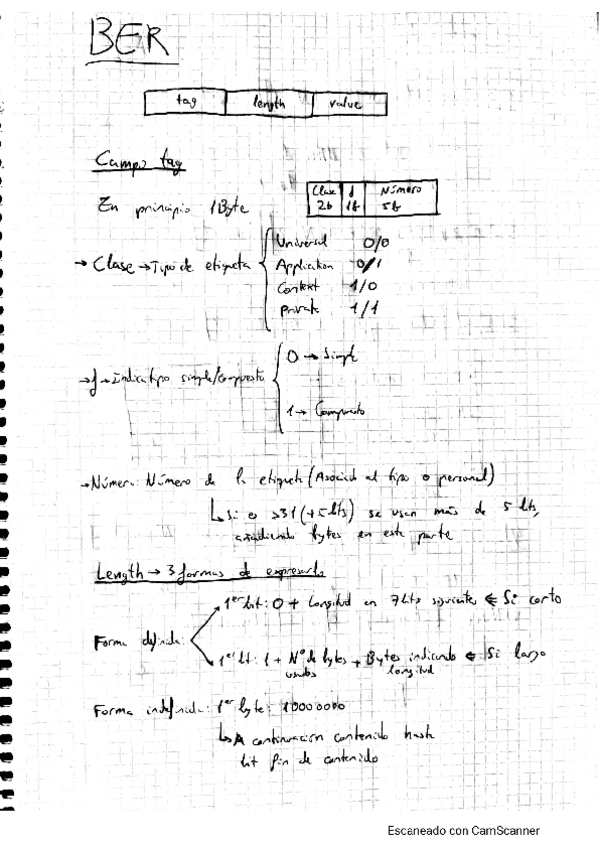 BER
tag length value
Campo tag
Clase f Número
2b 1b 5b
En principio 1Byte
→ Clase → Tipo de etiqueta
Universal 0/0
Application 0/1
Context 1/0
Private 1/1
→ f → Indica tipo simple/compuesto
0 → Simple
1 → Compuesto
→ Número: Número de la etiqueta (Asociado al tipo o personal)
↳ Si es >31 (+5 bits) se usan más de 5 bits,
añadiendo bytes en este parte
Length → 3 formas de expresarla
1er bit: 0 + Longitud en 7 bits siguientes ⇐ Si corto
Forma definida:
1er bit: 1 + Nº de bytes usados + Bytes indicando longitud ⇐ Si largo
Forma indefinida: 1er byte: 10000000
↳ A continuación contenido hasta
bit fin de contenido
Escaneado con CamScanner